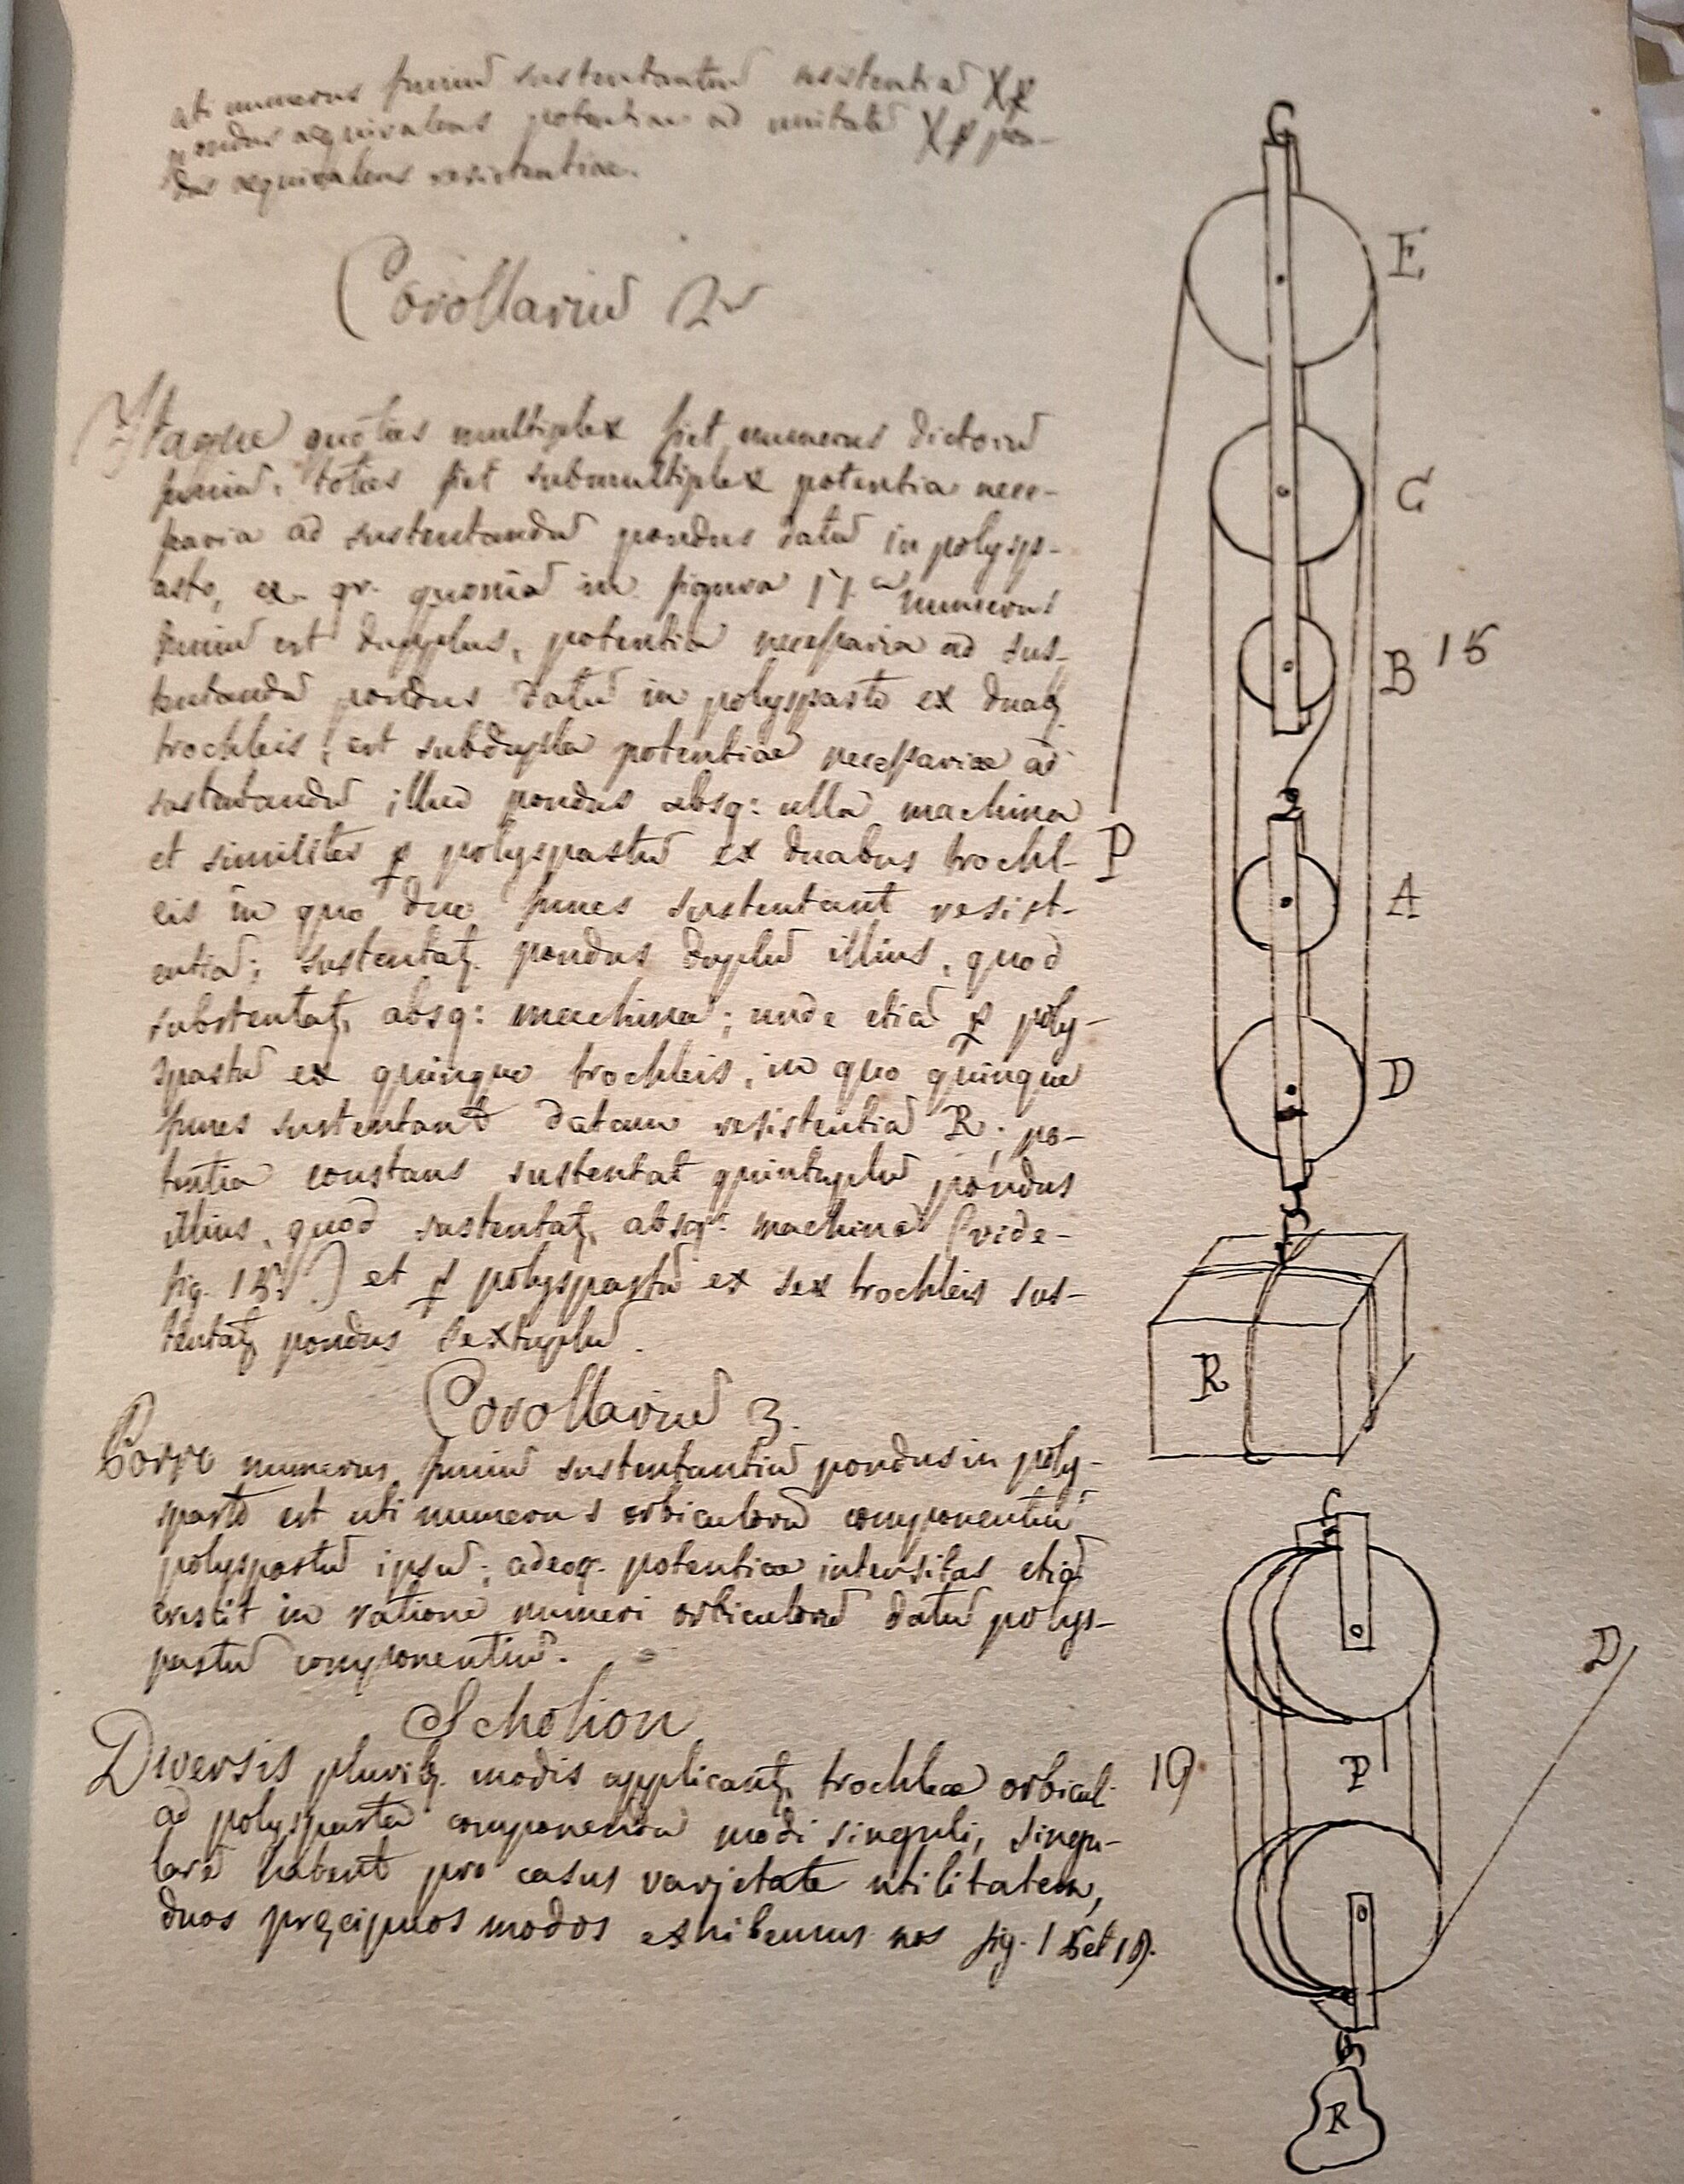 uti numerus funiū sustentantiū resistentiā X ꝑ
pondus aequivalens potentiae ad unitatē X ꝑ pon-
dus aequivalens resistentiae.
Corollariū 2ū
Itaque quoties multiplex fiet numerus dictorū
funiū, toties fiet submultiplex potentia nece-
ssaria ad sustentandū pondus datū in polysp-
asto, ex. gr. quoniā in figura 17.a numerus
funiū est duplus, potentia necessaria ad sus-
tentandū pondus datū in polyspasto ex duabꝫ
trochleis, est subdupla potentiae necessariae ad
sustentandū illud pondus absq: ulla machina
et similiter ꝑ polyspastū ex duabus trochl-
eis in quo duo funes sustentant resist-
entiā; sustentatꝫ pondus duplū illius, quod
substentatꝫ absq: machina; unde etiā ꝑ poly-
spastū ex quinque trochleis, in quo quinque
funes sustentant datam resistentiā R; po-
tentia constans sustentat quintuplū pondus
illius, quod sustentatꝫ absq: machina (vide-
fig. 15.) et ꝑ polyspastū ex sex trochleis sus-
tentatꝫ pondus sextuplū.
Corollariū 3.
Porro numerus funiū sustentantiū pondus in poly-
spasto est uti numerus orbiculorū componentiū
polyspastū ipsū; adeoq. potentiae intensitas etiā
crescit in ratione numeri orbiculorū datū polys-
pastū componentiū.
Scholion
Diversis pluribꝫ modis applicantꝫ trochleae orbicul.
ad polyspasta componenda modi singuli, singu-
larē habent pro casus varietate utilitatem,
duos pręcipuos modos exhibemus nos fig. 15 et 19.
E
C
B 15
P
A
D
R
D
19.
P
R